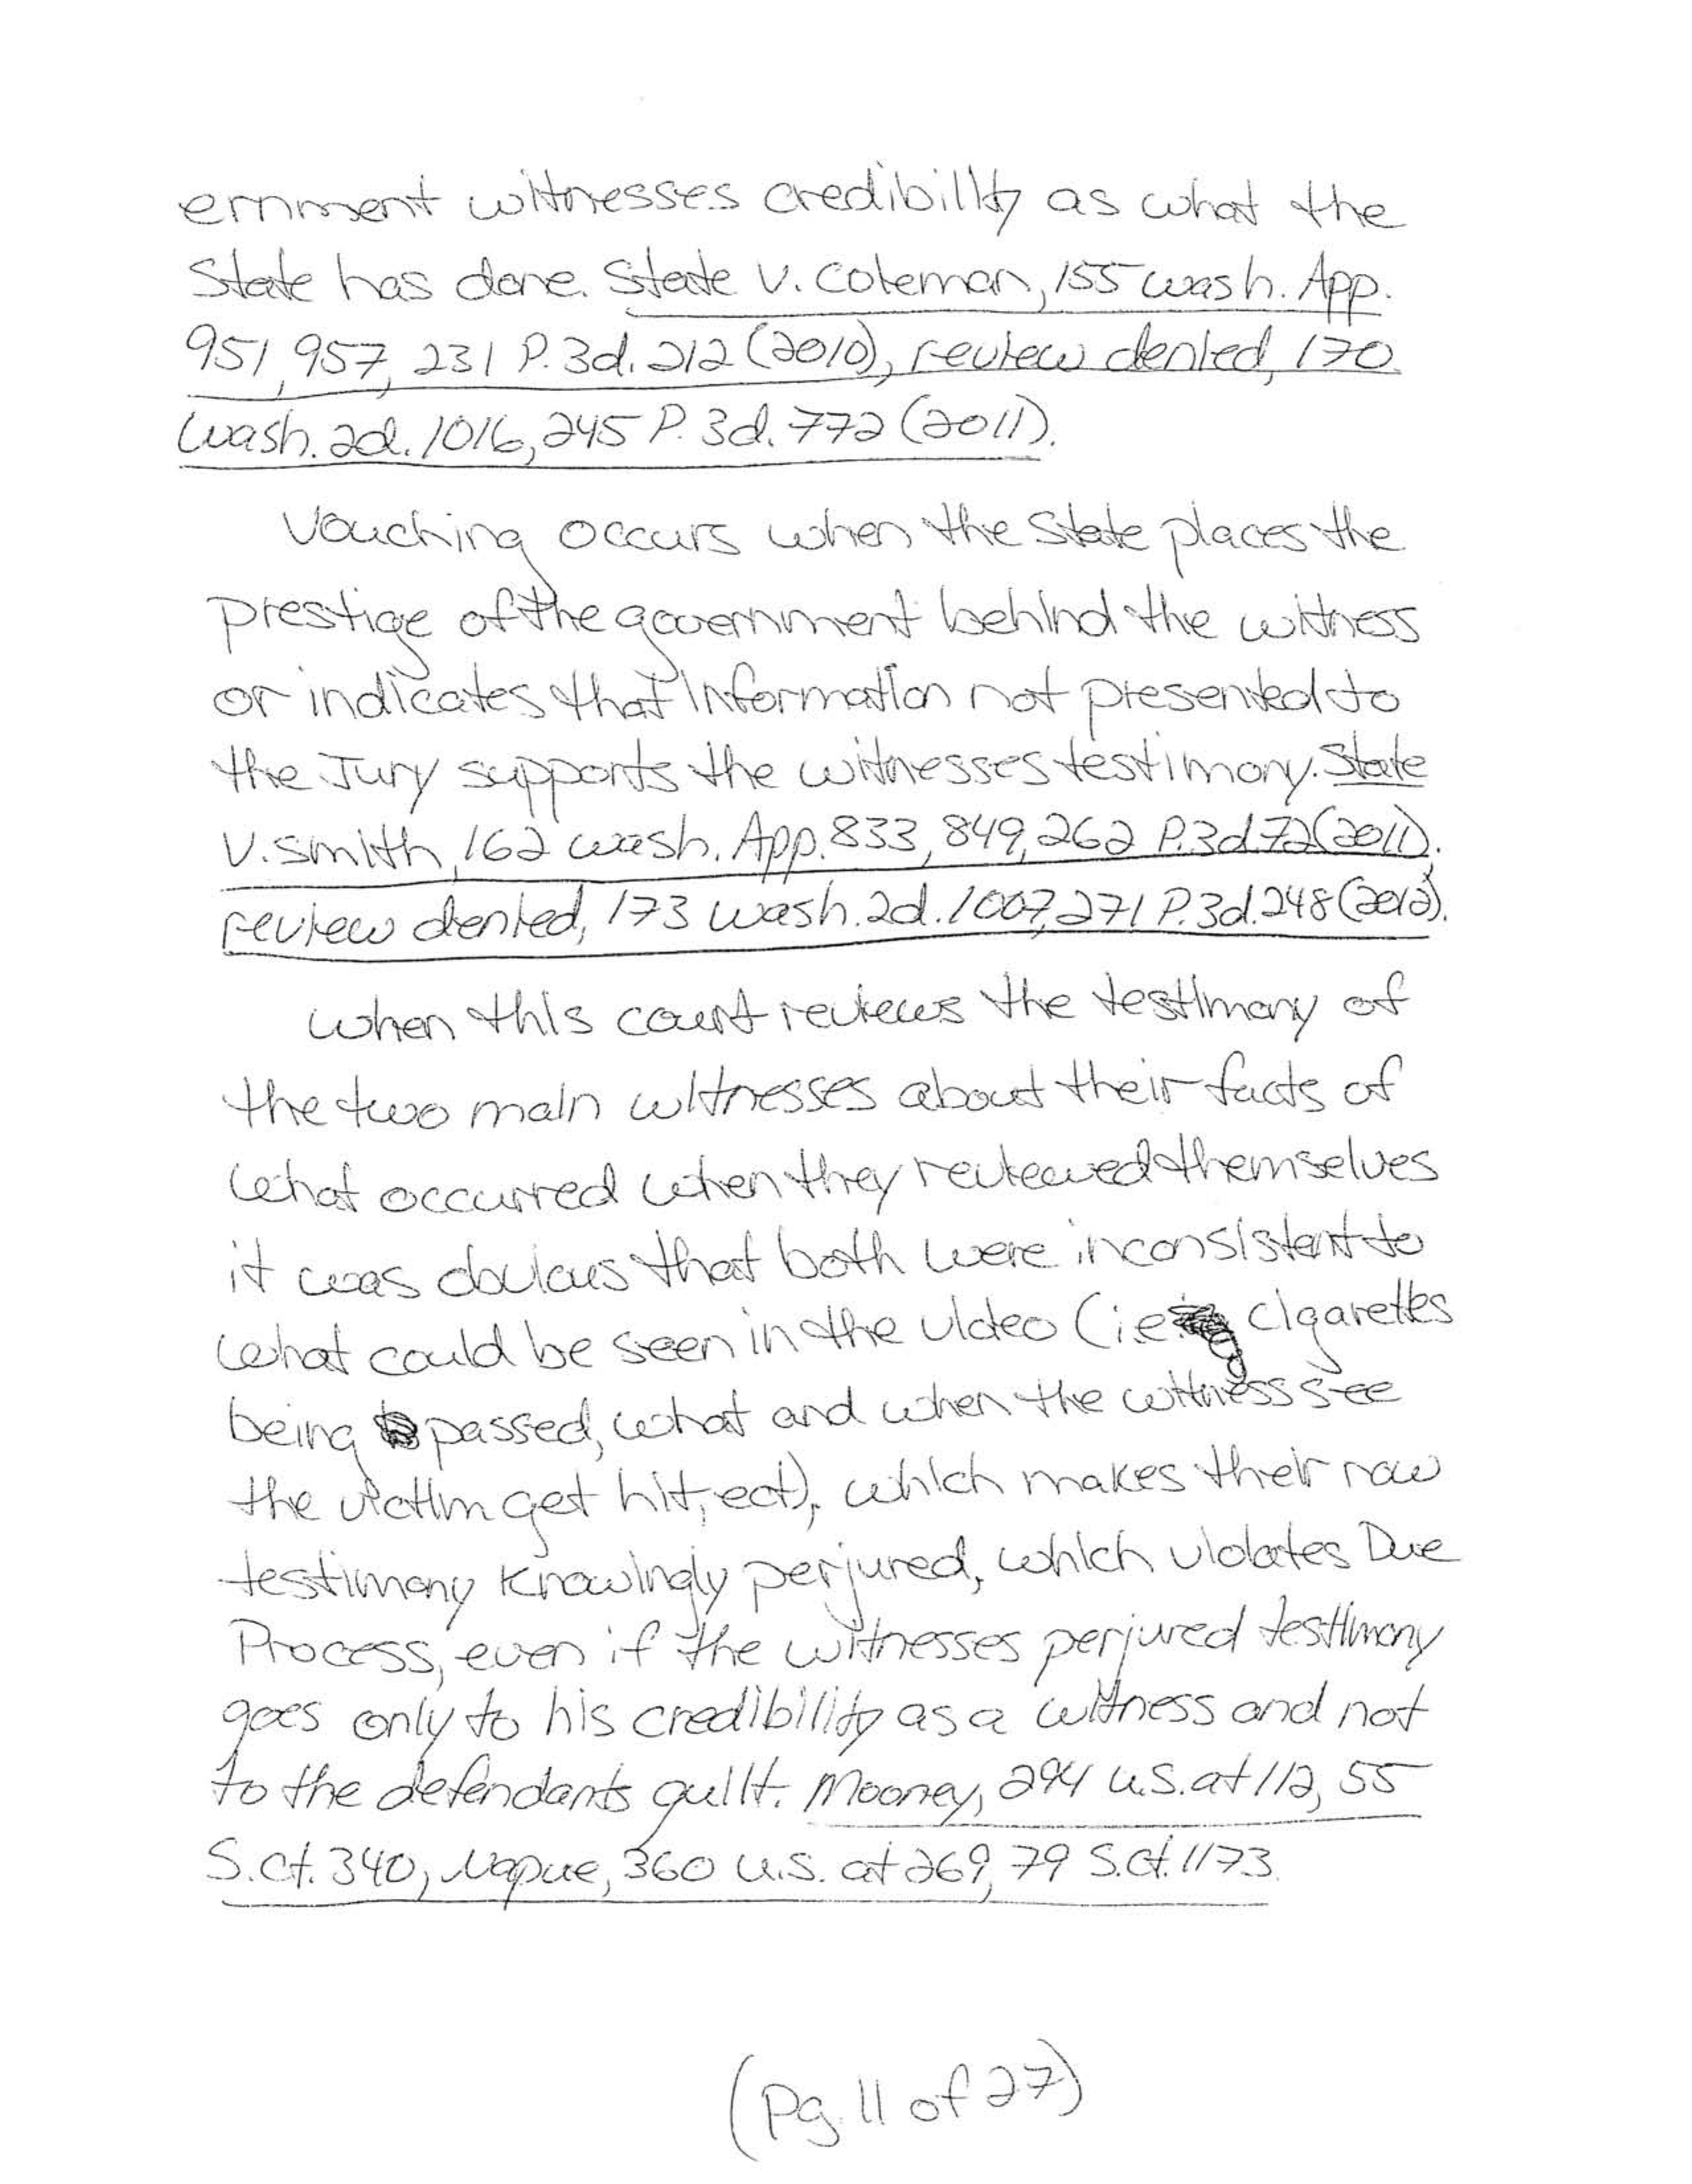 ernment witnesses credibility as what the
State has done. State v. Coleman, 155 wash. App.
951, 957, 231 P. 3d. 212 (2010), review denied, 170
Wash. 2d. 1016, 245 P. 3d. 772 (2011).
Vouching occurs when the State places the
prestige of the government behind the witness
or indicates that information not presented to
the Jury supports the witnesses testimony. State
V. Smith, 162 wash. App. 833, 849, 262 P.3d 72 (2011),
review denied, 173 wash. 2d. 1007, 271 P.3d. 248 (2012).
when this court reviews the testimony of
the two main witnesses about their facts of
what occurred when they reviewed themselves
it was obvious that both were inconsistent to
what could be seen in the video (i.e. cigarettes
being passed, what and when the witness see
the victim get hit, ect), which makes their now
testimony knowingly perjured, which violates Due
Process, even if the witnesses perjured testimony
goes only to his credibility as a witness and not
to the defendants guilt. Mooney, 294 U.S. at 112, 55
S. Ct. 340, Napue, 360 U.S. at 269, 79 S. Ct. 1173.
(Pg. 11 of 27)